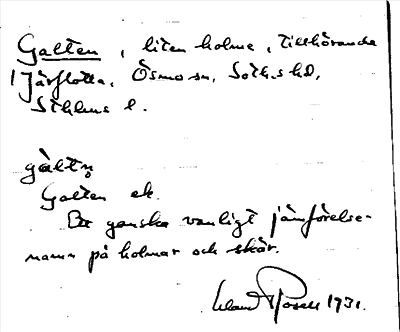 Galten, liten holme, tillhörande
Järflotta, Ösmo sn, Soth.s hd,
Sthlms l.
gàltn̥
Galten ek.
Ett ganska vanligt jämförelse-
namn på holmar och skär.
1931.